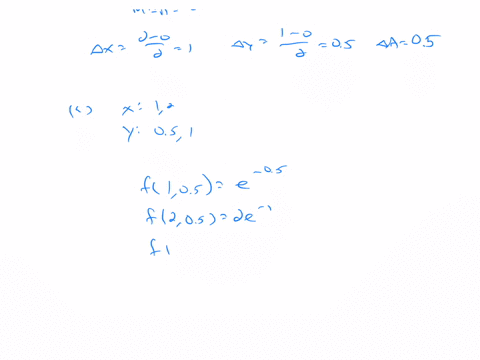 Δx = (2-0)/2 = 1 Δy = (1-0)/2 = 0.5 ΔA = 0.5
x: 1,2
y: 0.5, 1
f(1,0.5) = e^-0.5
f(2,0.5) = 2e^-1
f(